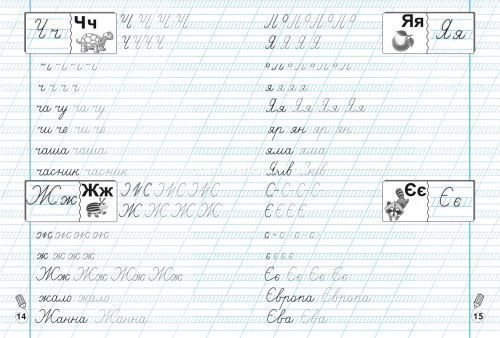 Чч Чч Ч Ч Ч Ч
Ч Ч Ч Ч
ч ч ч ч
ча чу ча чу
чи че чи че
чаша чаша
часник часник
Жж Жж
Ж Ж Ж Ж
ж ж ж ж ж
ж ж ж ж
Жж Жж Жж Жж
жало жало
Жанна Жанна
14
Яя Яя
Я Я Я Я
я я я я
Яя Яя Яя Яя
яр ян яр ян
яма яма
Яків Яків
Єє Єє
Є Є Є Є
є є є є
Єє Єє Єє Єє
Європа Європа
Єва Єва
15